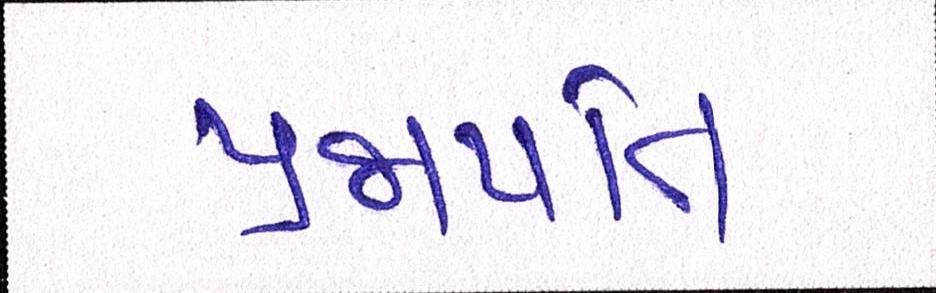 પ્રજાપતિ